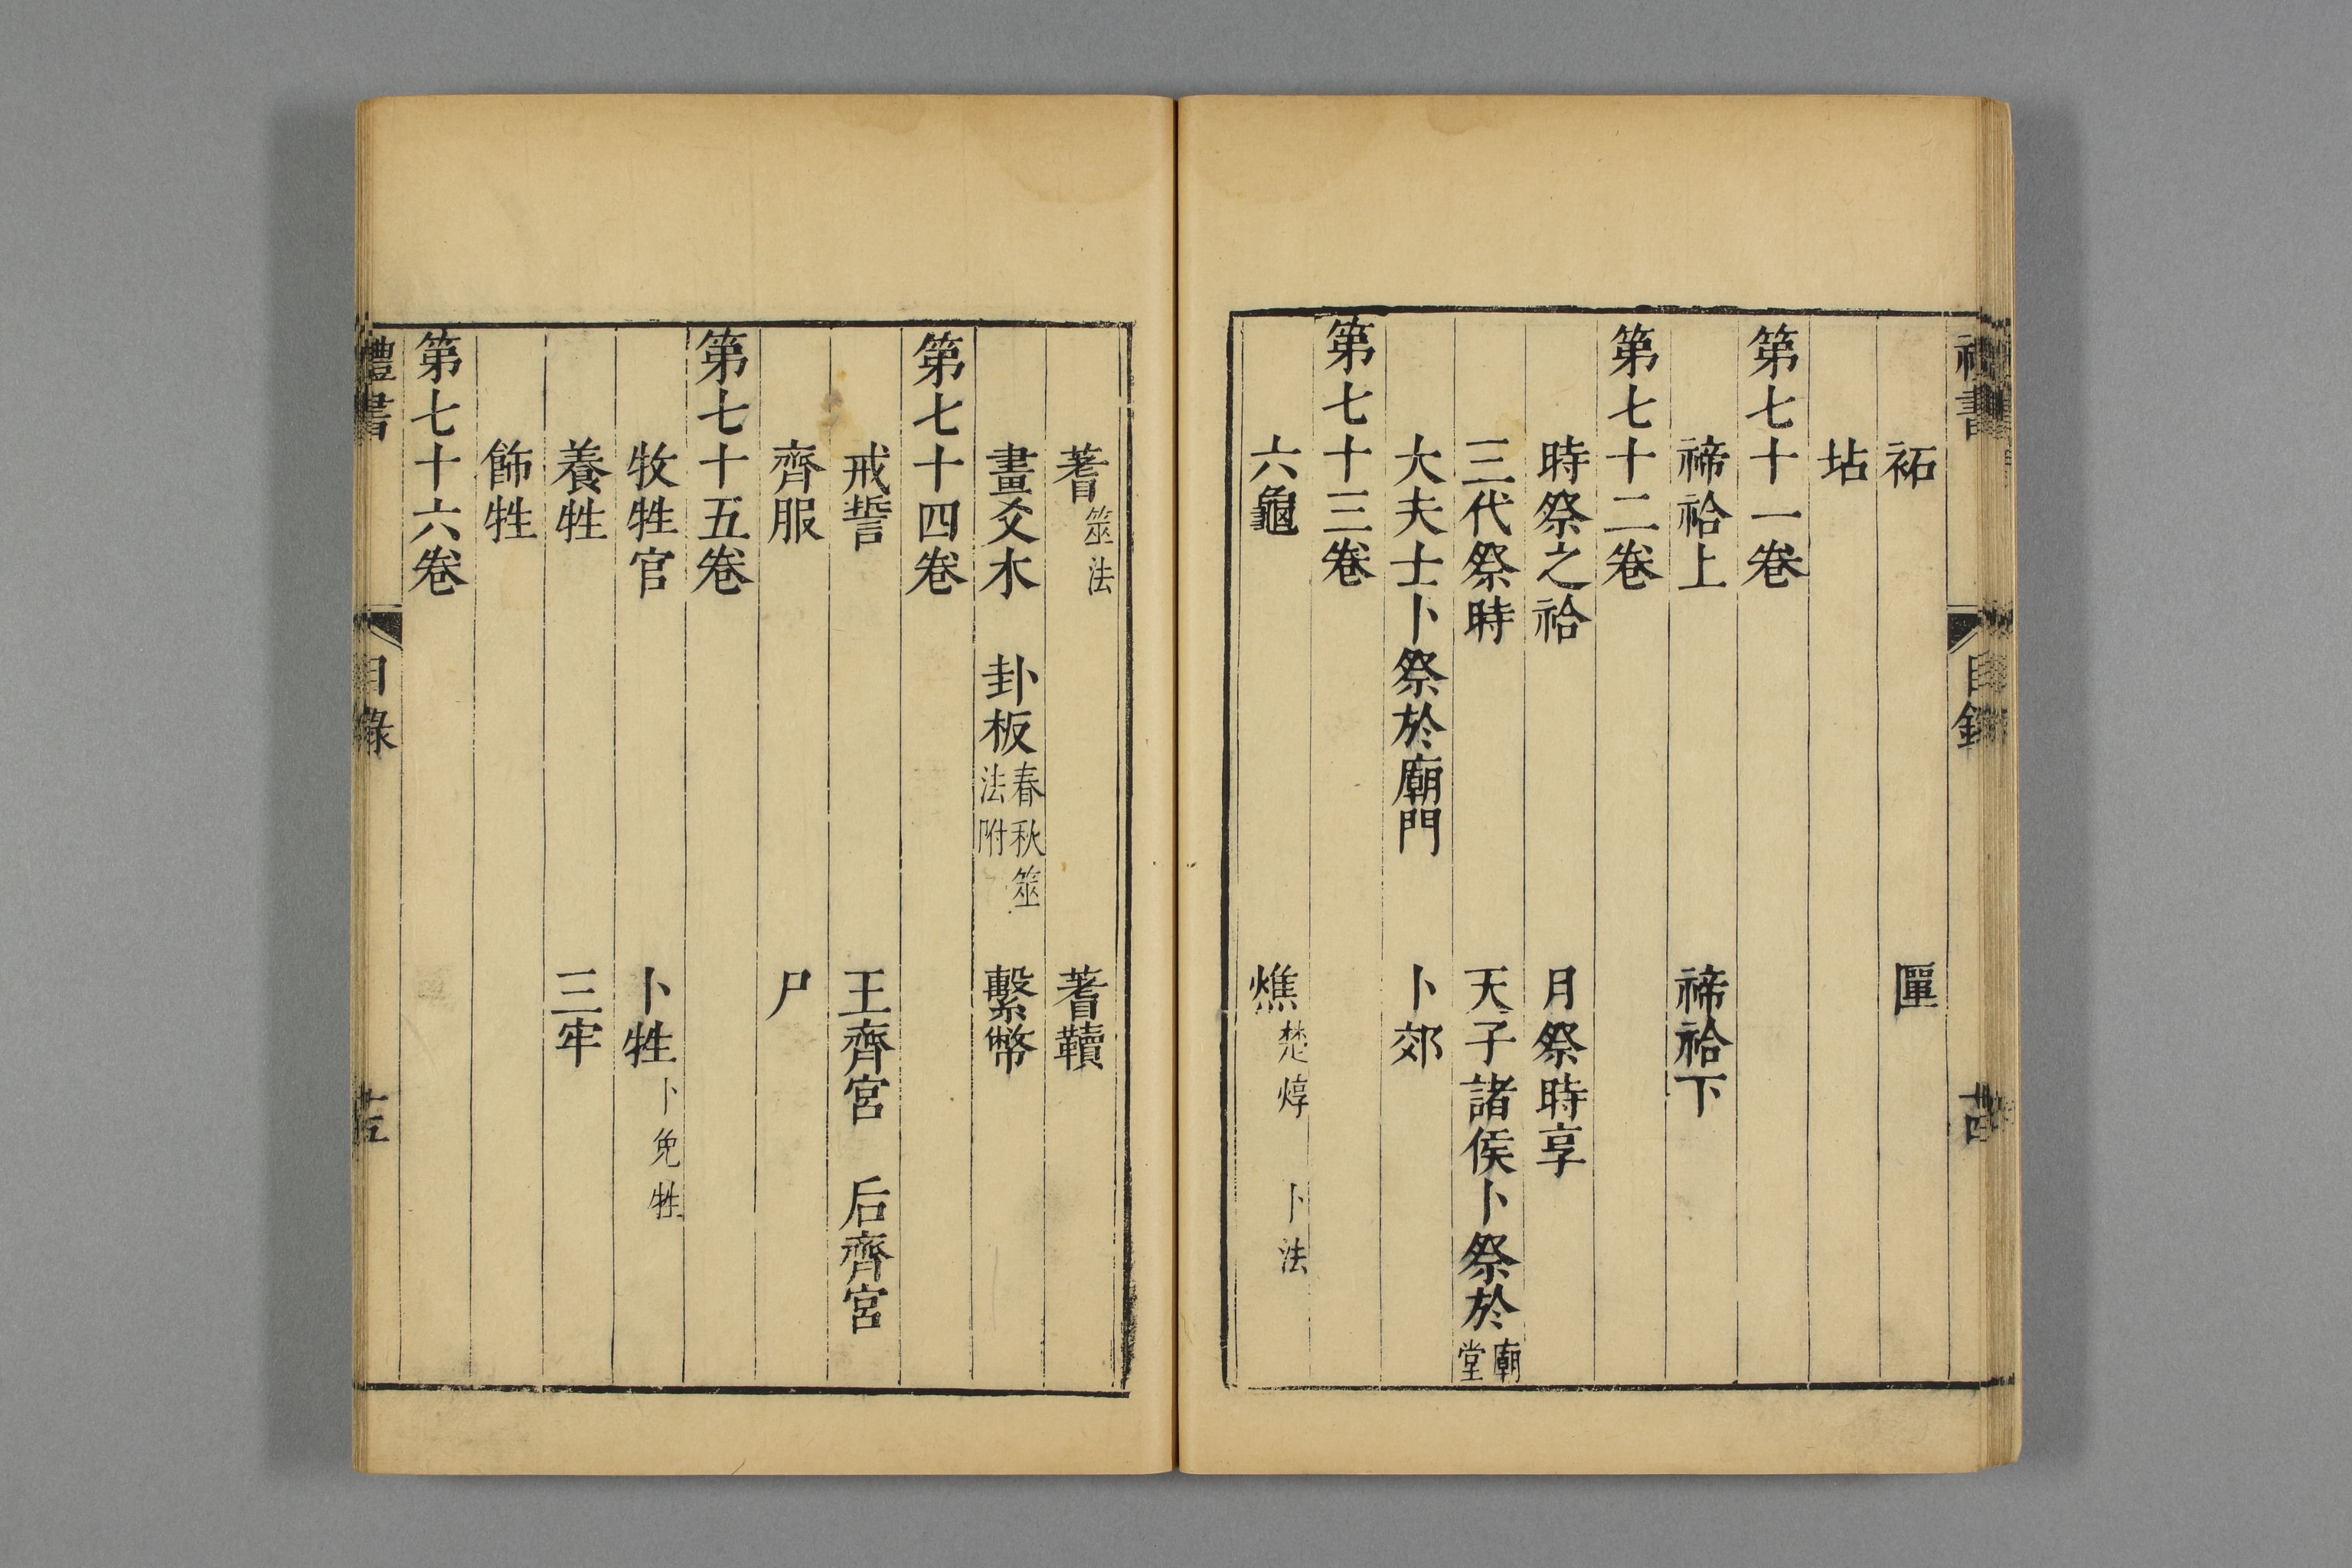 禮書 目錄
祏 匰
坫
第七十一卷
禘祫上 禘祫下
第七十二卷
時祭之祫 月祭時享
三代祭時 天子諸侯卜祭於廟堂
大夫士卜祭於廟門 卜郊
第七十三卷
六龜 燋楚焞 卜法
蓍筮法 蓍韇
畫爻木 卦板春秋筮法附 繫幣
第七十四卷
戒誓 王齊宮 后齊宮
齊服 尸
第七十五卷
牧牲官 卜牲卜免牲
養牲 三牢
飾牲
第七十六卷
禮書 目錄